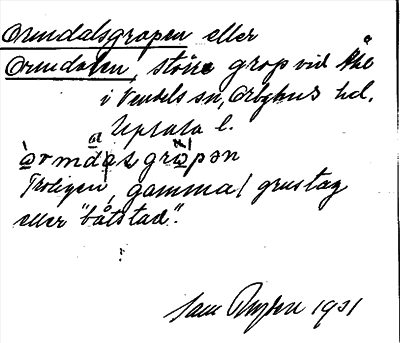 Ormdalsgropen eller
Ormdalen, större grop vid Åbo
i Vendels sn, Örbyhus hd,
Uppsala l.
òrmdalsgró̄pən
Troligen gammal grustag
eller "båtstad".
1931